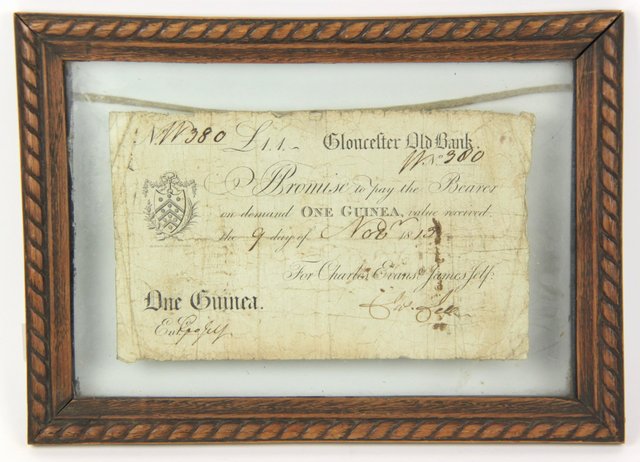 No. W380 £1.1.- Gloucester Old Bank.
W. No. 380
I Promise to pay the Bearer
on demand ONE GUINEA, value received.
the 9 day of Novr. 1813
For Charles Evans & James Jelf:
One Guinea.
Entd.